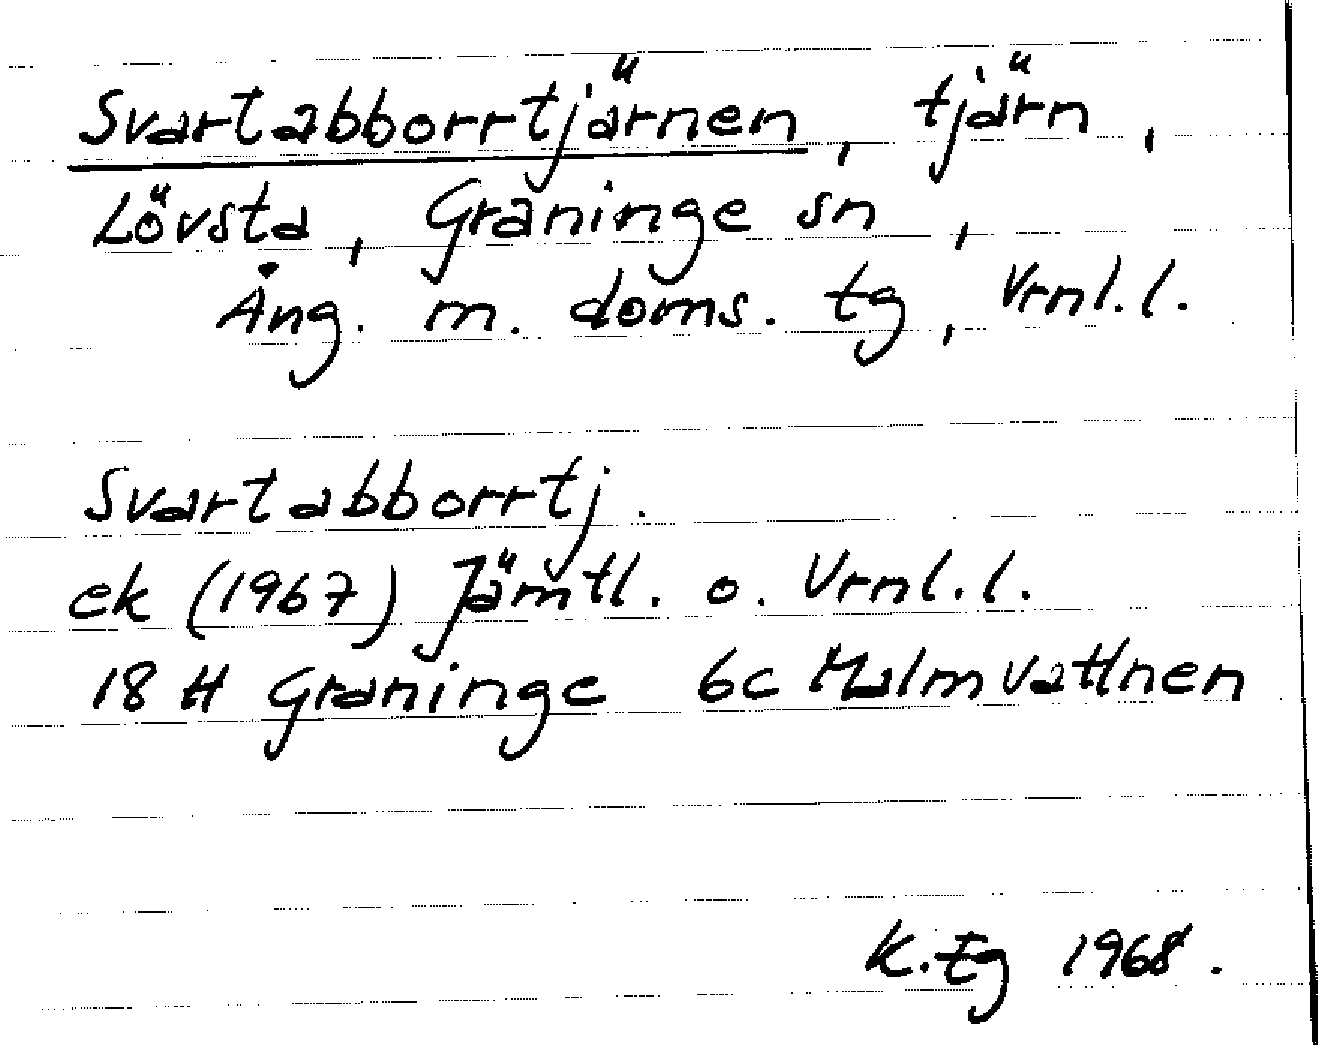 Svartabborrtjärnen, tjärn,
Lövsta, Graninge sn,
Ång. m. doms. tg, Vrnl.l.
Svartabborrtj.
ek (1967) Jämtl. o. Vrnl.l.
18 H Graninge 6c Malmvattnen
K.Eg 1968.